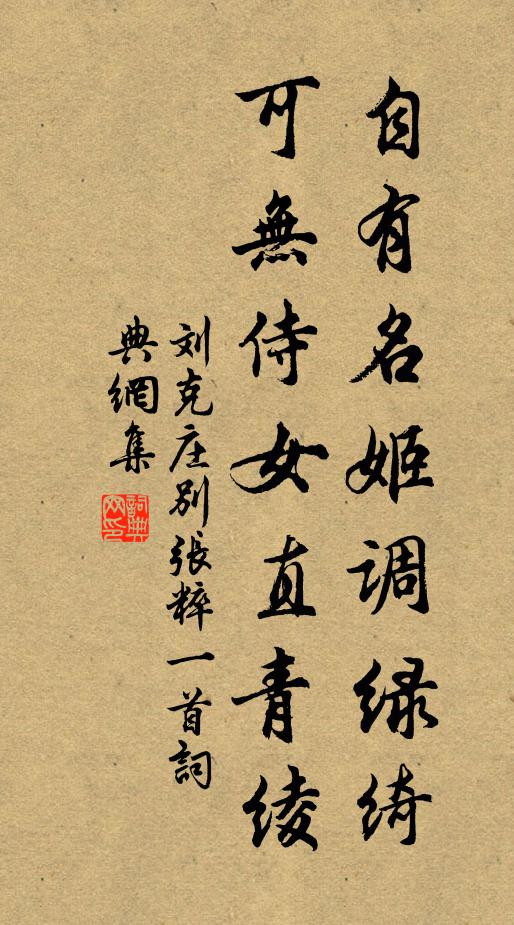 自有名姬调绿绮
可無侍女直青绫
刘克庄别張粹一首詞
典網集
詞典网印